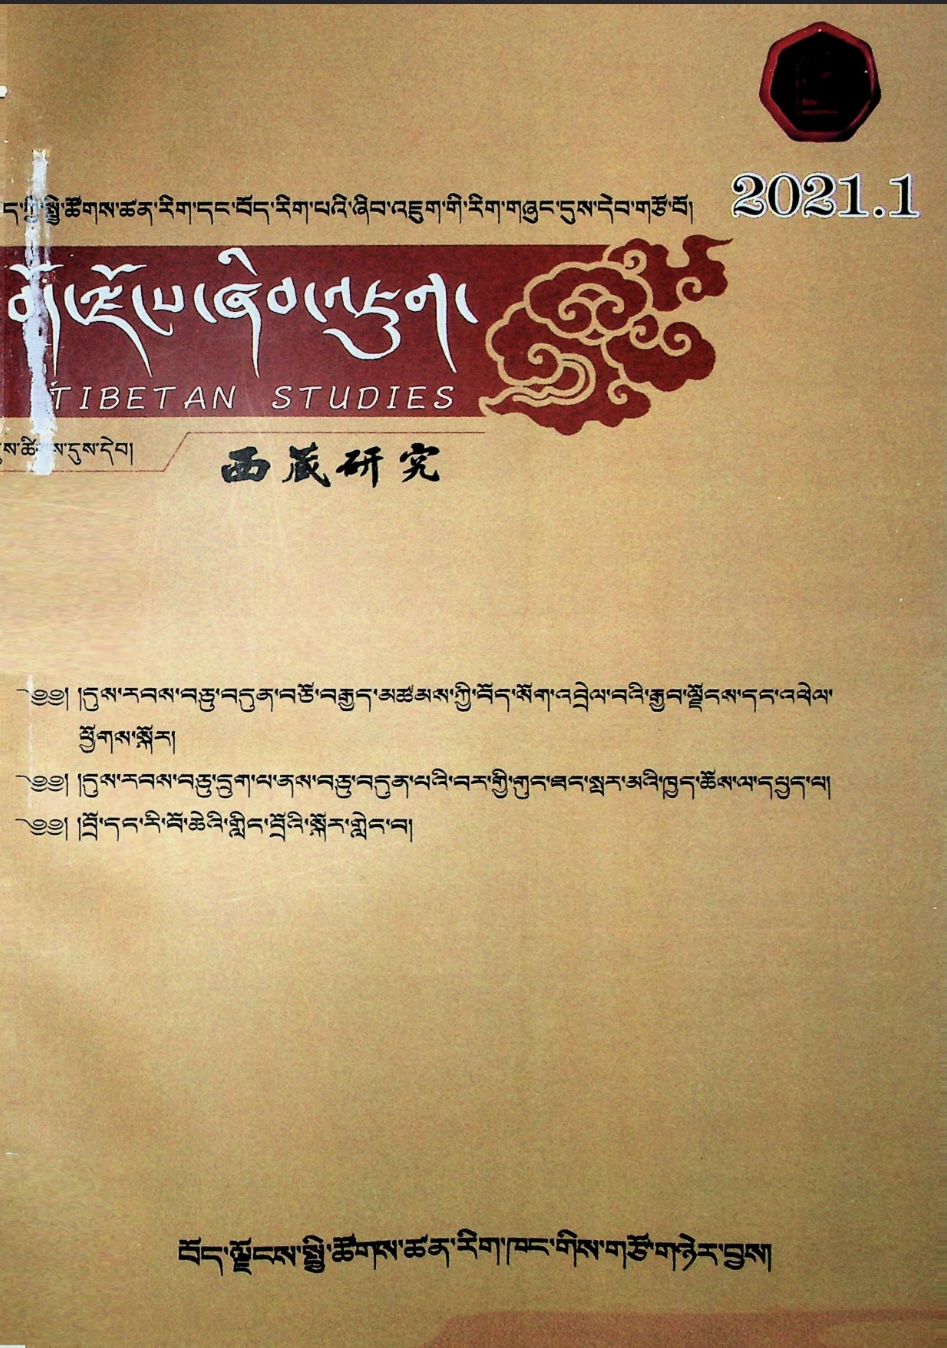 2021.1
སྤྱི་ཚོགས་ཚན་རིག་དང་བོད་རིག་པའི་ཞིབ་འཇུག་གི་རིག་གཞུང་དུས་དེབ་གཙོ་བོ།
བོད་ལྗོངས་ཞིབ་འཇུག
TIBETAN STUDIES
དུས་དེབ།
西藏研究
༄༅། །དུས་རབས་བཅུ་བདུན་བཅོ་བརྒྱད་མཚམས་ཀྱི་བོད་སོག་འབྲེལ་བའི་རྒྱབ་ལྗོངས་དང་འཕེལ་
ཕྱོགས་སྐོར།
༄༅། །དུས་རབས་བཅུ་དྲུག་པ་ནས་བཅུ་བདུན་པའི་བར་གྱི་གུང་ཐང་སྤར་མའི་ཁྱད་ཆོས་ལ་དཔྱད་པ།
༄༅། །བྲོ་དང་རི་བོ་ཆེའི་གླིང་བྲོའི་སྐོར་གླེང་བ།
བོད་ལྗོངས་སྤྱི་ཚོགས་ཚན་རིག་ཁང་གིས་གཙོ་གཉེར་བྱས།